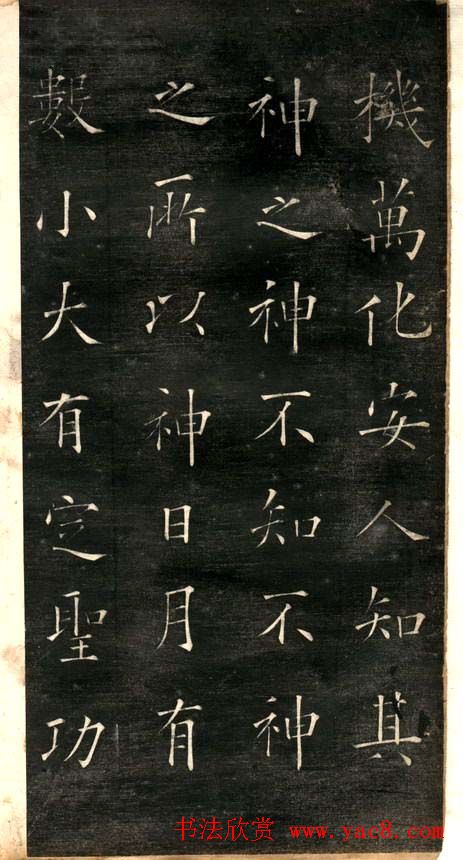 機萬化安人知其
神之神不知不神
之所以神日月有
數小大有定聖功
书法欣赏 www.yac8.com